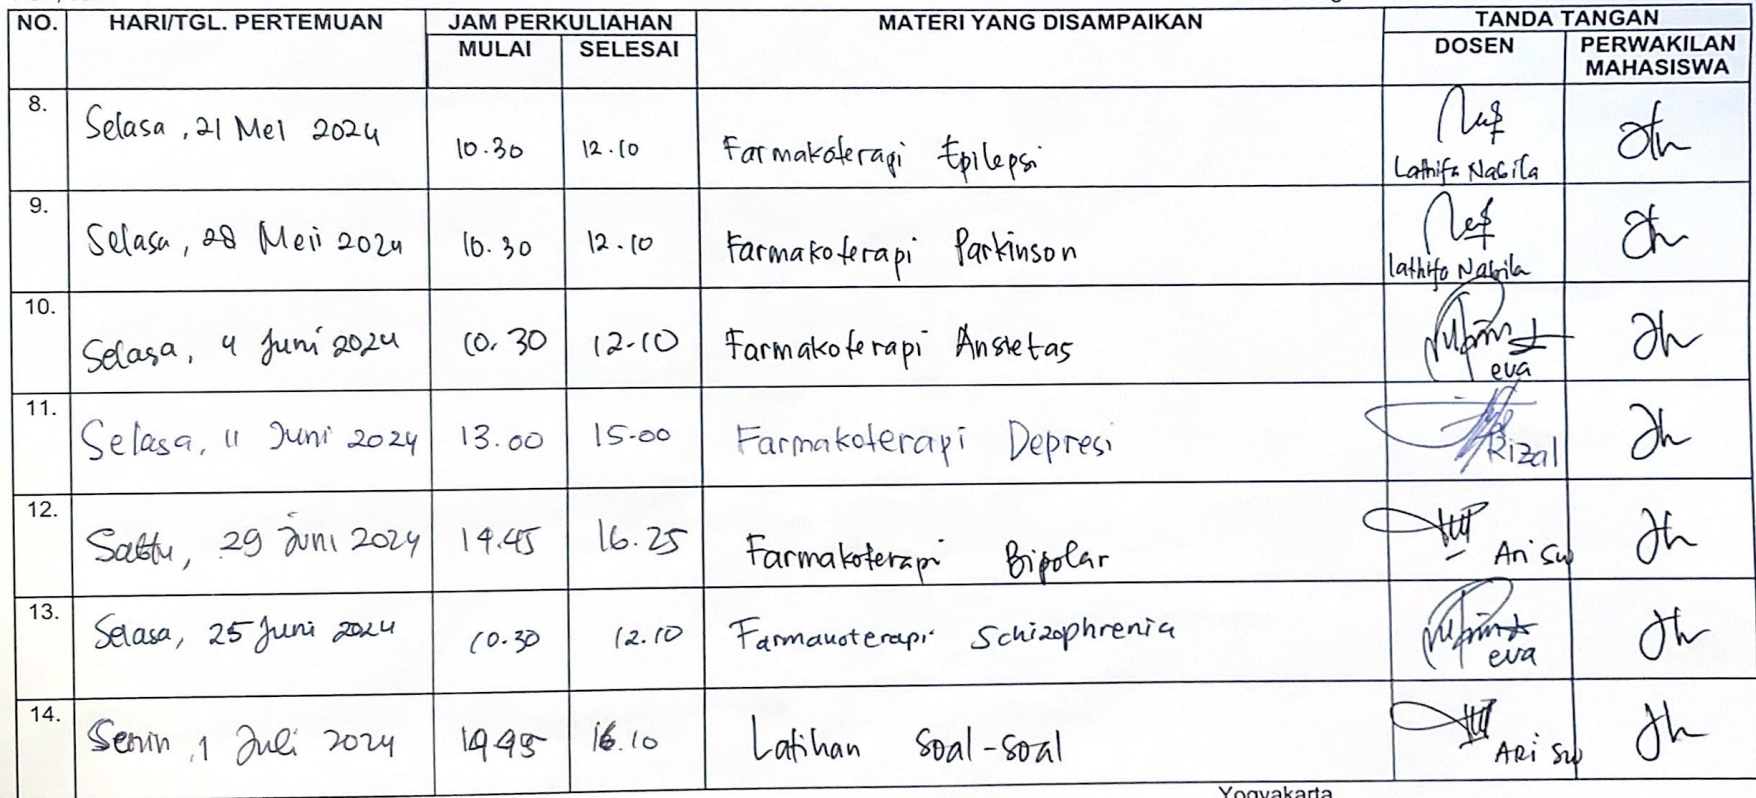 NO. HARI/TGL. PERTEMUAN JAM PERKULIAHAN MATERI YANG DISAMPAIKAN TANDA TANGAN
MULAI SELESAI DOSEN PERWAKILAN
MAHASISWA
8. Selasa, 21 Mei 2024 10.30 12.10 Farmakoterapi Epilepsi
Lathifa Nabila
9. Selasa, 28 Meii 2024 10.30 12.10 Farmakoterapi Parkinson
lathifa Nabila
10. Selasa, 4 Juni 2024 10.30 12.10 Farmakoterapi Ansietas
eva
11. Selasa, 11 Juni 2024 13.00 15.00 Farmakoterapi Depresi
Rizal
12. Sabtu, 29 Juni 2024 14.45 16.25 Farmakoterapi Bipolar
Ari Sw
13. Selasa, 25 Juni 2024 10.30 12.10 Farmakoterapi Schizophrenia
eva
14. Senin, 1 Juli 2024 14.45 16.10 Latihan Soal-soal
ARi Sw
Yogyakarta